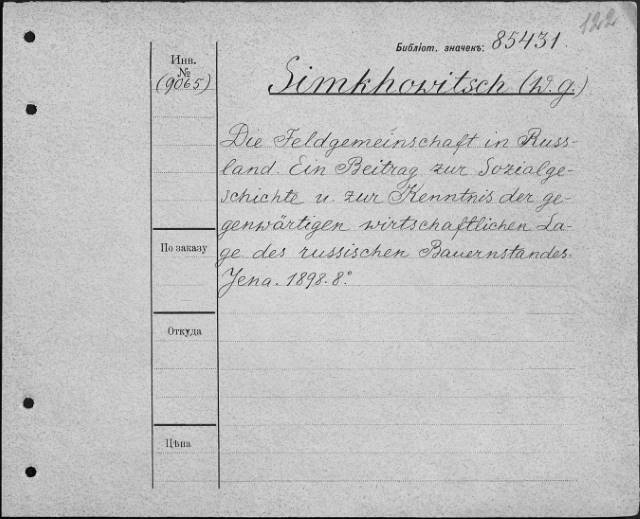 122
Библіот. значекъ: 85431.
Инв.
№
(9065)
Simkhowitsch (W. G.)
Die Feldgemeinschaft in Russ-
land. Ein Beitrag zur Sozialge-
schichte u. zur Kenntnis der ge-
genwärtigen wirtschaftlichen La-
ge des russischen Bauernstandes.
Jena. 1898. 8°
По заказу
Откуда
Цѣна